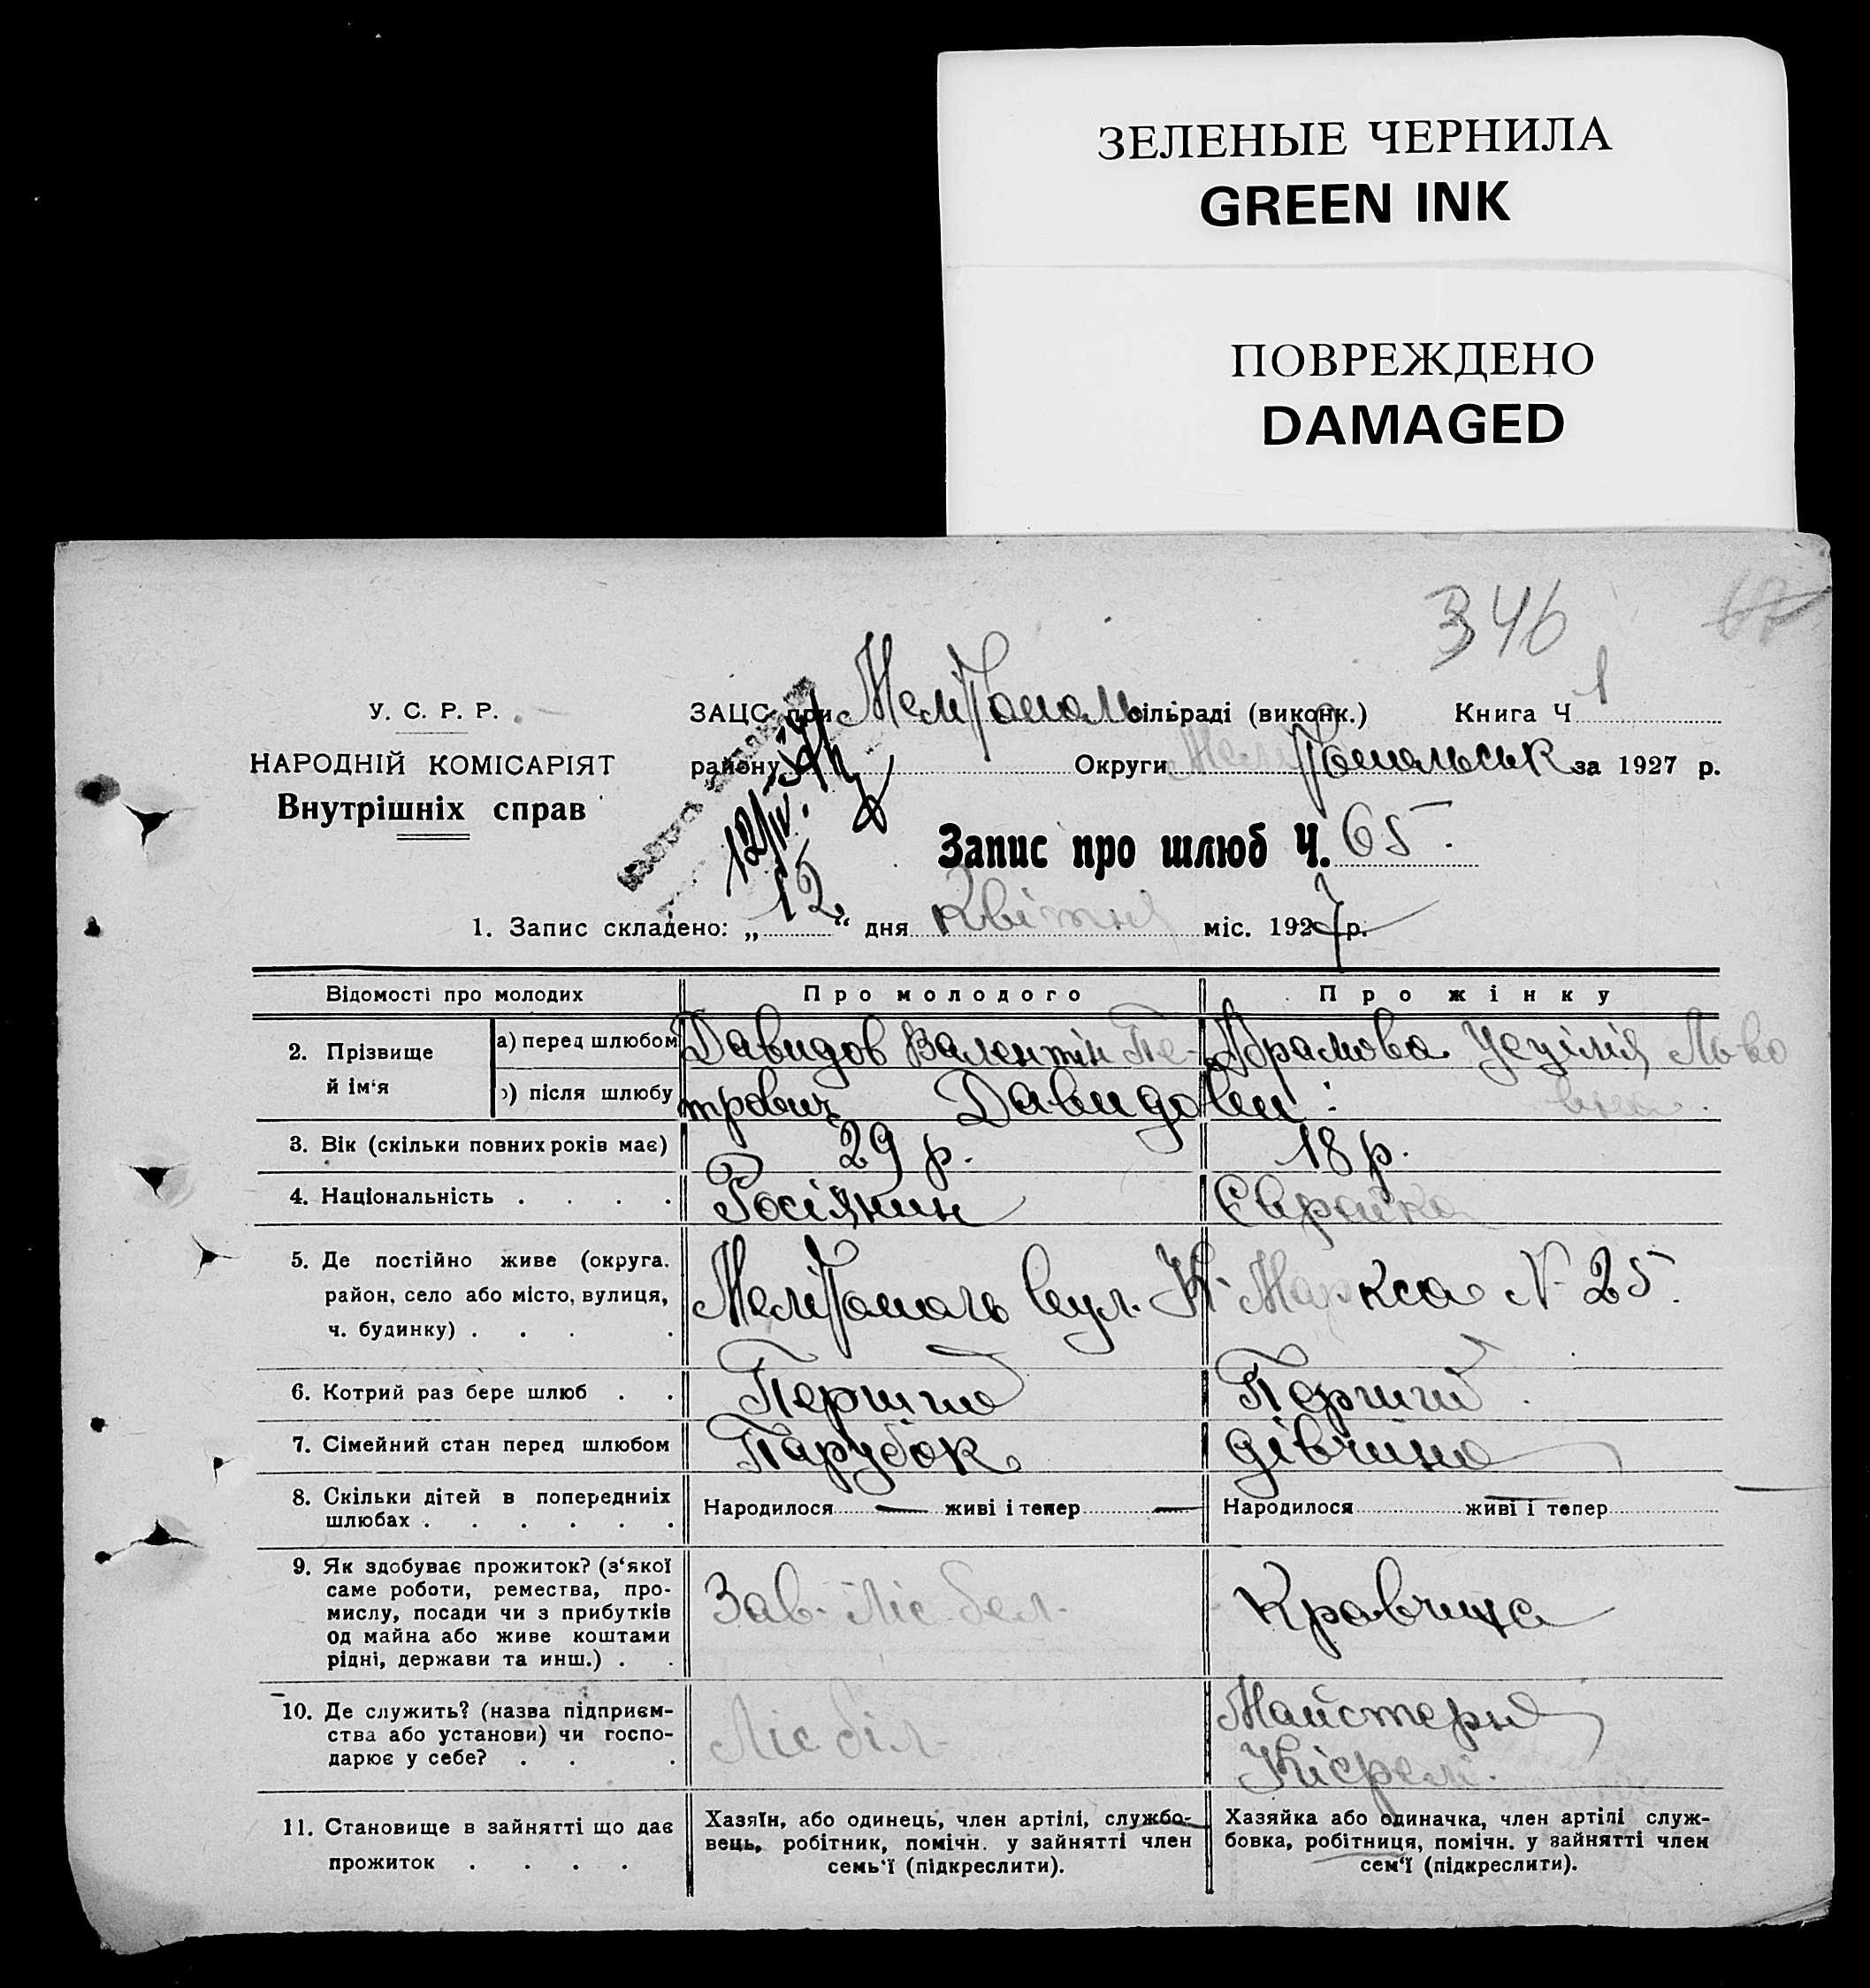 ЗЕЛЕНЫЕ ЧЕРНИЛА
GREEN INK
ПОВРЕЖДЕНО
DAMAGED
346
У. С. Р. Р.
НАРОДНІЙ КОМІСАРІЯТ
Внутрішніх справ
ЗАЦС при Мелітополь сільраді (виконк.) Книга Ч 1
району Округи Мелітопольськ за 1927 р.
12/IV.
Запис про шлюб Ч. 65.
1. Запис складено: „12“ дня Квітня міс. 1927 р.
Відомості про молодих Про молодого Про жінку
2. Прізвище й ім‘я
а) перед шлюбом Давидов Валентін Пе- Абрамова Цецілія Льво
) після шлюбу трович Давидови. вна.
3. Вік (скільки повних років має) 29 р. 18 р.
4. Національність . . . . Росіянин Єврейка
5. Де постійно живе (округа,
район, село або місто, вулиця,
ч. будинку) . . . .
Мелітополь вул. К. Маркса N 25.
6. Котрий раз бере шлюб . . Перший Перший.
7. Сімейний стан перед шлюбом Парубок дівчина
8. Скільки дітей в попередниіх
шлюбах . . . . . .
Народилося — живі і тепер — Народилося живі і тепер
9. Як здобуває прожиток? (з‘якої
саме роботи, ремества, про-
мислу, посади чи з прибутків
од майна або живе коштами
рідні, держави та инш.) . .
Зав. Ліс бел. Кравчиця
10. Де служить? (назва підприєм-
ства або установи) чи госпо-
дарює у себе? . . .
Ліс біл. Майстерня
11. Становище в зайнятті що дає
прожиток . . . .
Хазяїн, або одинець, член артілі, службо-
вець, робітник, помічн. у зайнятті член
семь‘ї (підкреслити).
Хазяйка або одиначка, член артілі служ-
бовка, робітниця, помічн. у зайнятті член
сем‘ї (підкреслити).